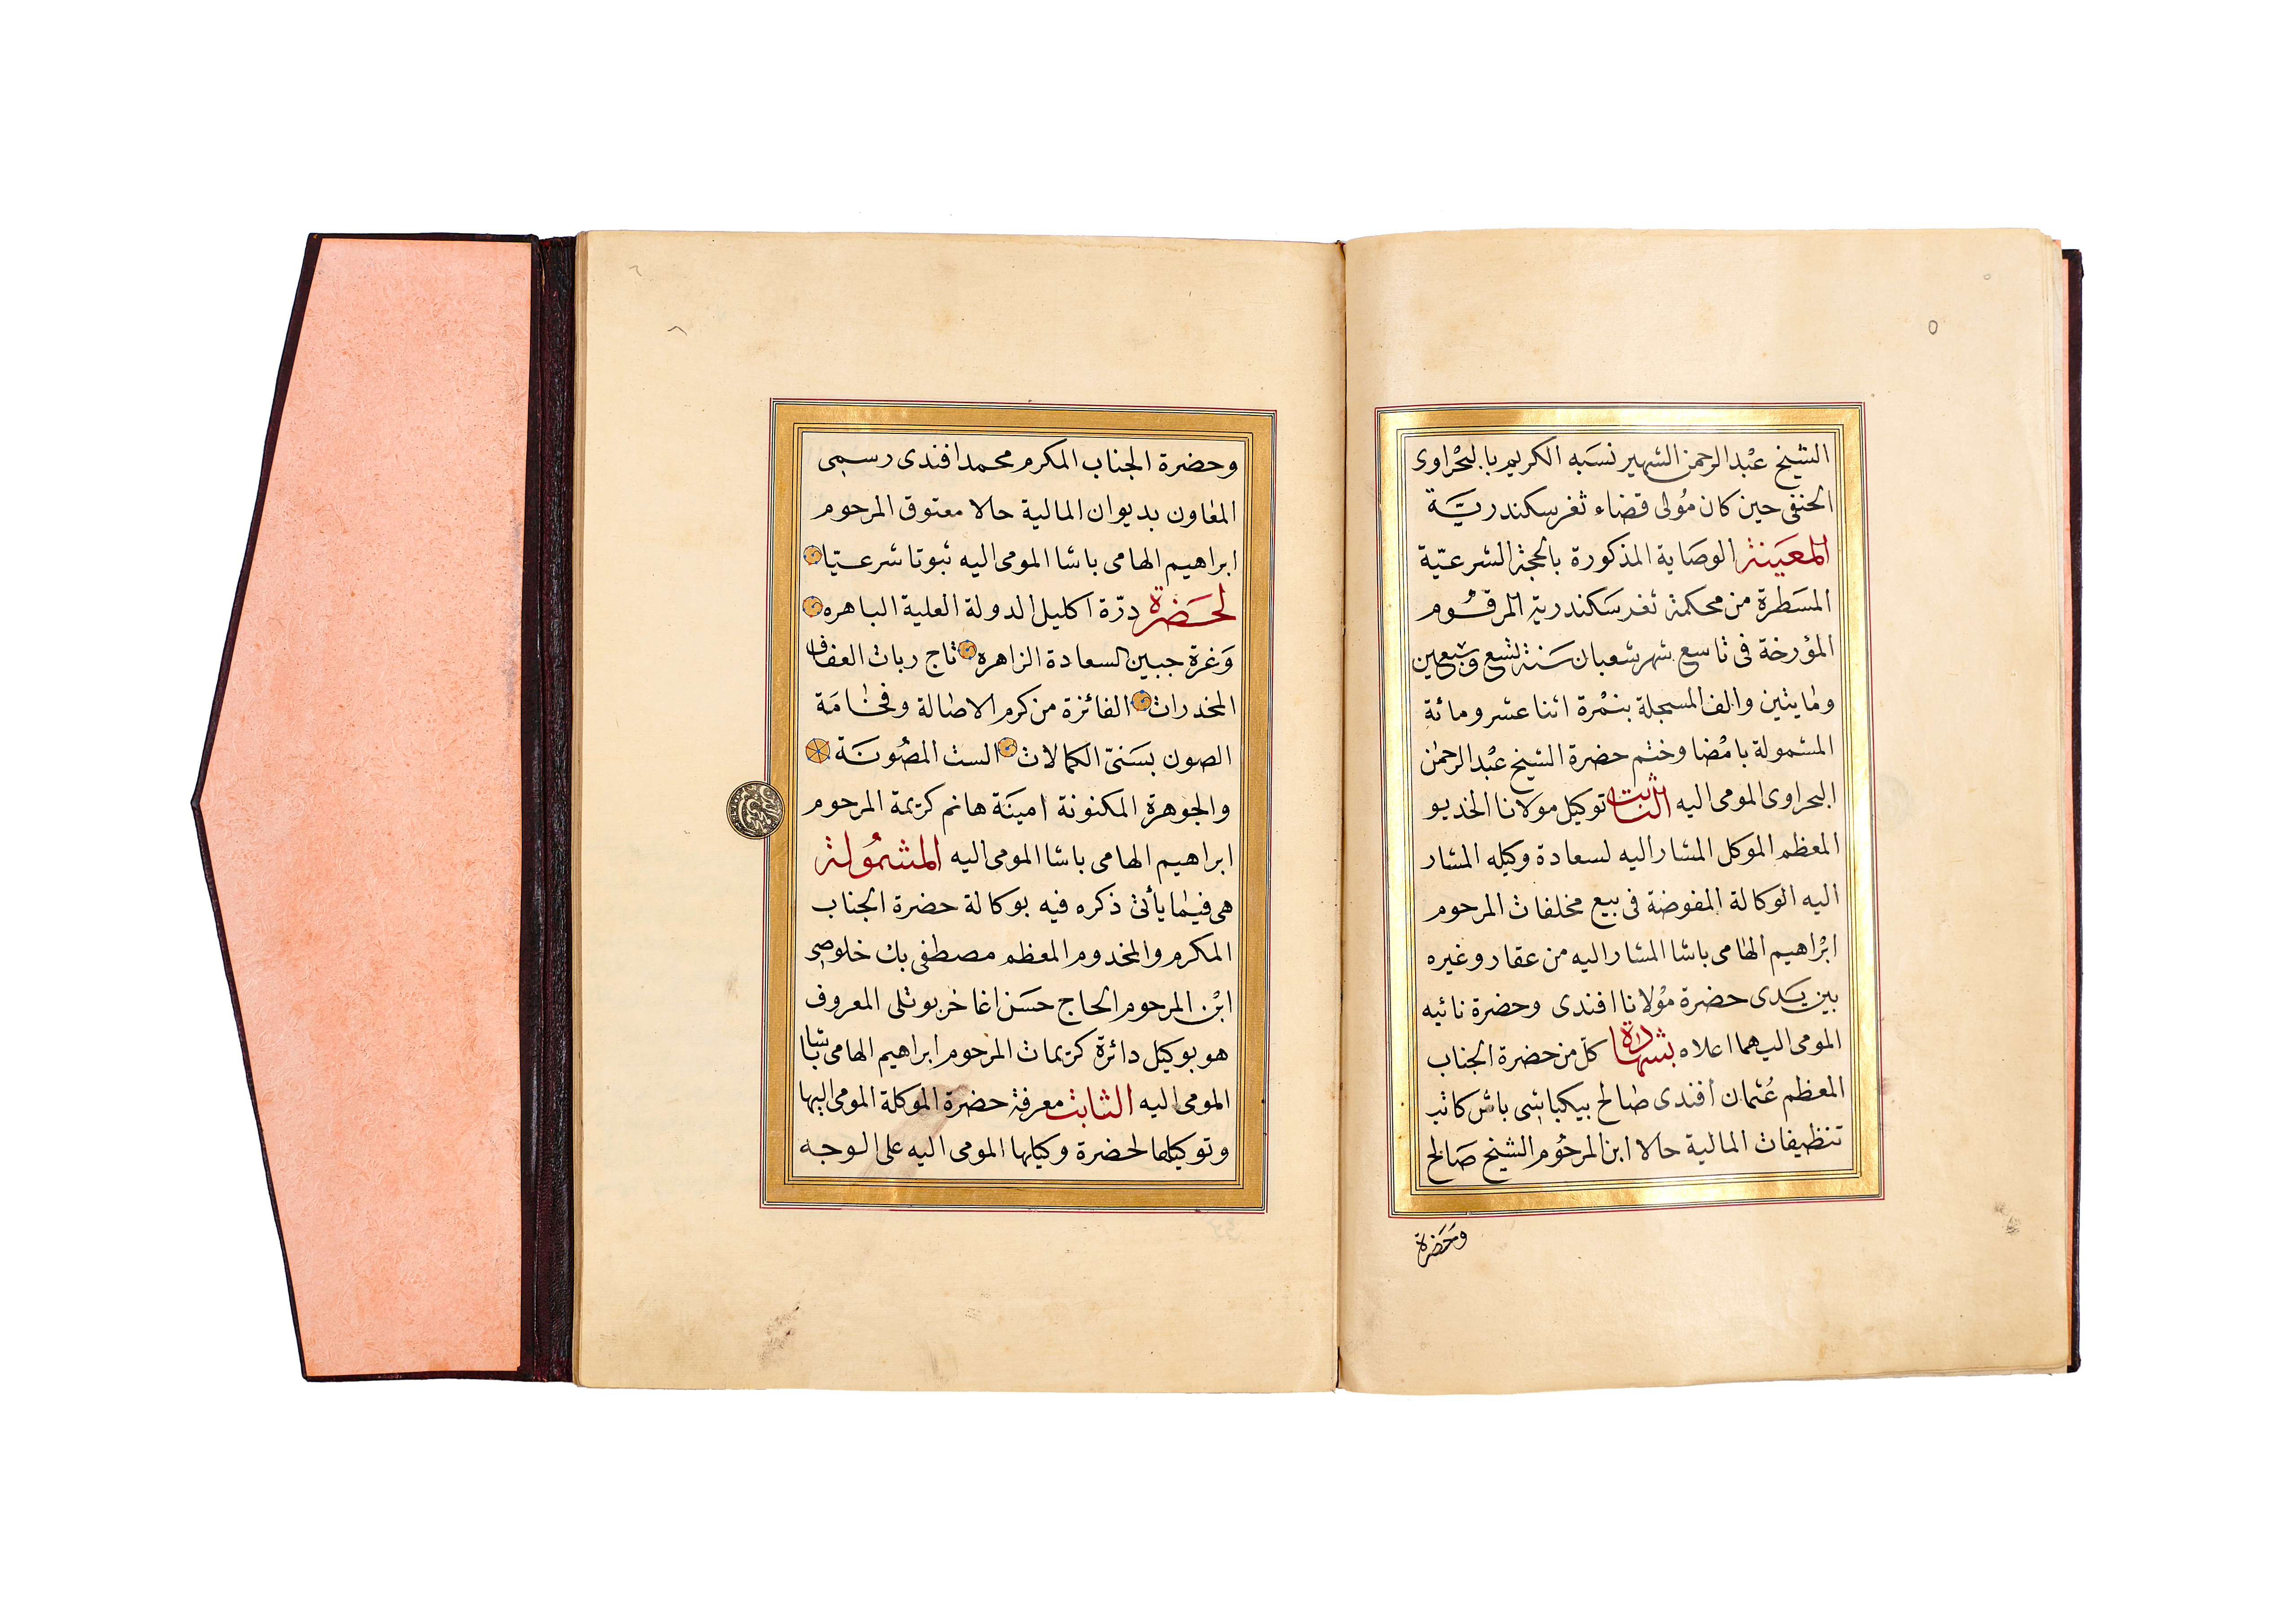 ٥
الشيخ عبْد الرحمن الشهير نسَبه الكريم بالبحْراوى
الحنفى حين كان مُولى قضاء ثغر سكندريَّة
المعَينة الوصَاية المذكورة بالحجة الشرعيّة
المسَطرة من محكمة ثغر سَكندرية المرقُوم
المؤرخة فى تاسع شهر شعبان سَنة تسع وسبعين
ومايتين والف المسجلة بنمْرة اثنا عشر ومائة
المشمولة بامْضا وختم حضرة الشيخ عبْد الرحمٰن
البحراوى المومى اليه الثابت توكيل مولانا الخديو
المعظم الموكل المشار اليه لسعادة وكيله المشار
اليه الوكالة المفوضة فى بيع مخلفات المرحوم
ابْراهيم الهامى باشا المشار اليه من عقار وغيره
بين يَدى حضرة مؤلانا افندى وحضرة نائبه
المومى اليهما اعلاه بشهادة كلّ من حضرة الجناب
المعظم عُثمان افندى صَالح بيكباشى باش كاتب
تنظيفات المالية حالا ابن المرحُوم الشيخ صَالح
وحَضرة
وحضرة الجناب المكرم محمد افندى رسمى
المعاون بديوان المالية حالا معتوق المرحوم
ابراهيم الهامى باشا المومى اليه ثبوتا شرعيّا
لحَضرة درّة اكليل الدولة العلية الباهره
وَغرة جبين السعادة الزاهره تاج ربات العفاف
المخدرات الفائزة من كرم الاصالة وفخامَة
الصون بسَنىّ الكمالات الست المصُونَة
والجوهرة المكنونة امينَة هانم كريمة المرحوم
ابراهيم الهامى باشا المومى اليه المشمُولة
هى فيما يأتى ذكره فيه بوكالة حضرة الجناب
المكرم والمخدوم المعظم مصطفى بك خلوصى
ابْن المرحوم الحاج حسَن اغا خربوتلى المعروف
هو بوكيل دائرة كريمات المرحوم ابراهيم الهامى باشا
المومى اليه الثابت معرفة حضرة الموكلة المومى اليها
وتوكيلها لحضرة وكيلها المومى اليه على الوجه